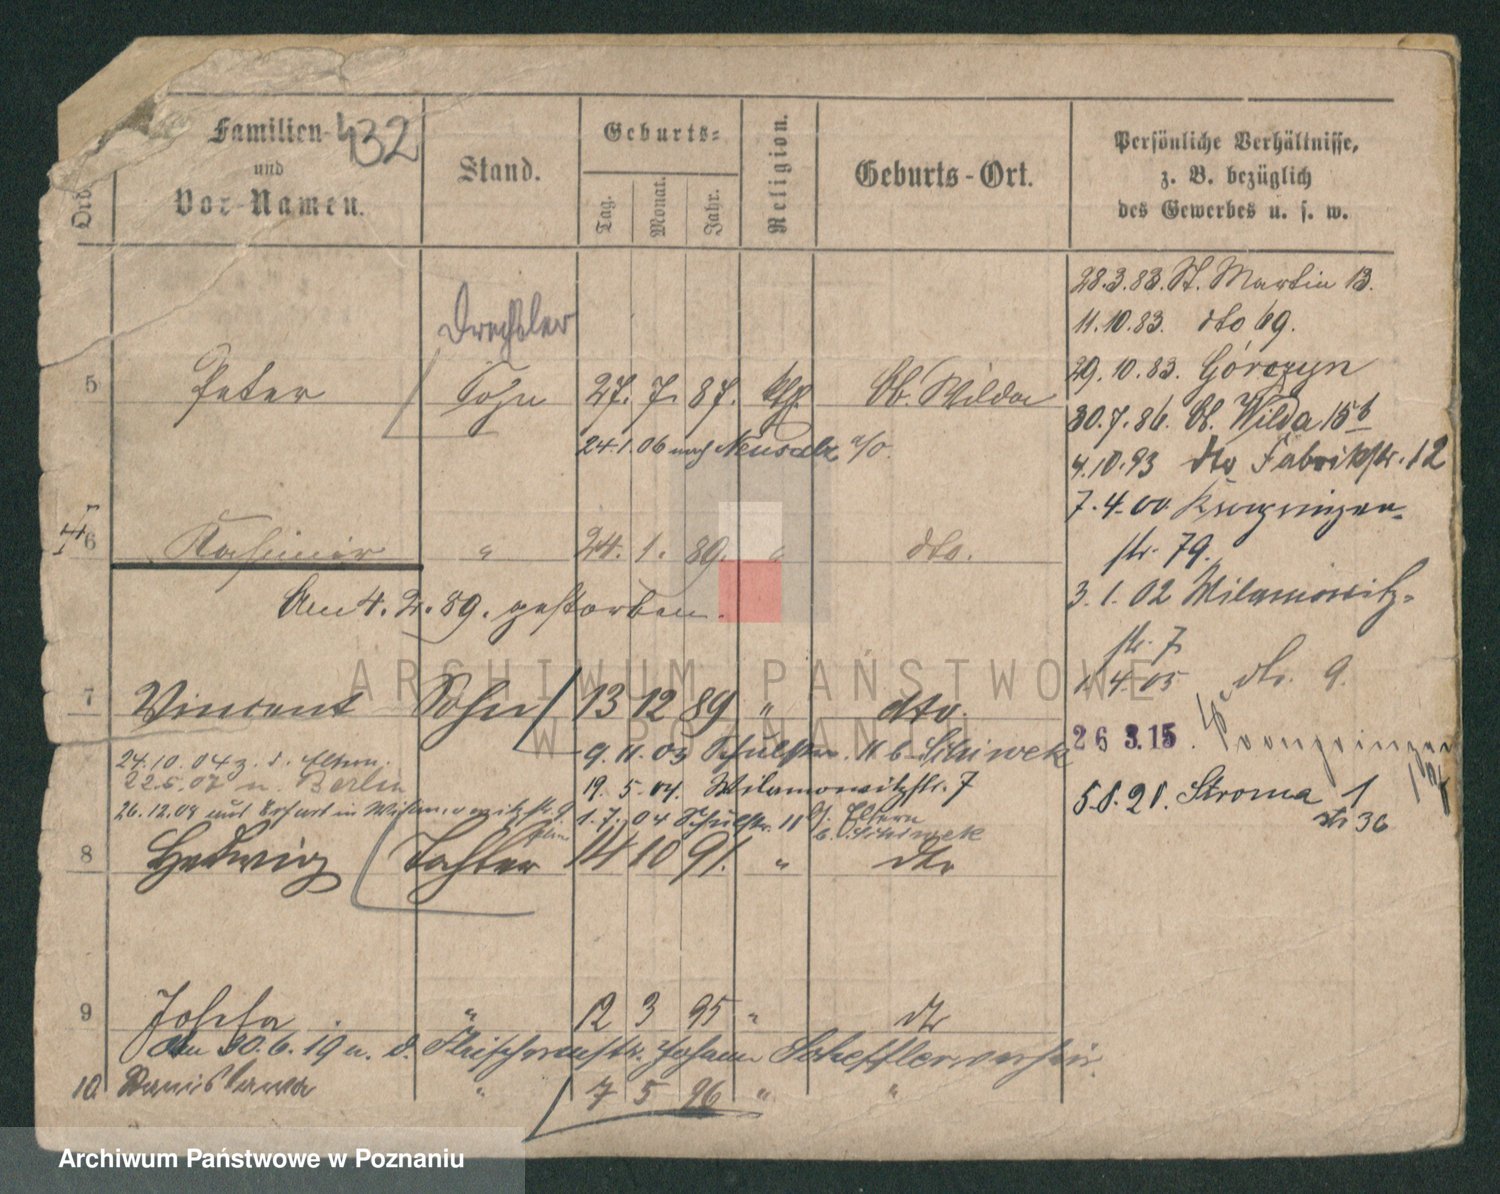 Ord.
Familien-
und
Vor-Namen.
432
Stand.
Geburts-
Tag.
Monat.
Jahr.
Religion.
Geburts-Ort.
Persönliche Verhältnisse,
z. B. bezüglich
des Gewerbes u. s. w.
28.3.83. St. Martin 13.
11.10.83. dto 69.
29.10.83. Górczyn
30.7.86. Ob. Wilda 15b
4.10.93 dto Fabrikstr. 12
7.4.00 Kronprinzen-
str. 79.
3.1.02 Wilamowitz-
str. 7
1.4.05 dto. 9.
26 3.15. Kronprinzen
5.8.21. Stroma 1
36
Drechsler
5 Peter Sohn 27. 7. 87. kth. Ob. Wilda
24.1.06 nach Neusalz a/O.
6 Kasimir " 24. 1. 89. " dto.
Am 4. 2. 89. gestorben.
7 Vincent Sohn 13 12 89 " dto.
24.10.04 z. d. Eltern.
9.11.03 Schulstr. 11 b.
22.5.07 n. Berlin
19. 5. 04. Wilamowitzstr. 7
26.12.09 aus in
1. 7. 04 Schulstr. 11
Eltern
8 Hedwig Tochter 14 10 91. " dto
9 Josefa " 12 3 95 " dto
Am 30.6.19 n. d. Johann
10. Stanislawa " 7 5 96 " "
ARCHIWUM PAŃSTWOWE
W POZNANIU
Archiwum Państwowe w Poznaniu